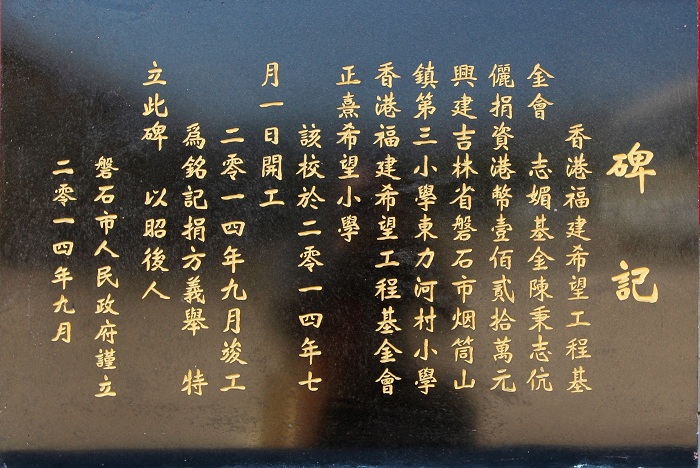 碑記
香港福建希望工程基
金會　志媚基金陳秉志伉
儷捐資港幣壹佰貳拾萬元
興建吉林省磐石市烟筒山
鎮第三小學東力河村小學
香港福建希望工程基金會
正熹希望小學
該校於二零一四年七
月一日開工
二零一四年九月竣工
爲銘記捐方義舉　特
立此碑　以昭後人
磐石市人民政府謹立
二零一四年九月